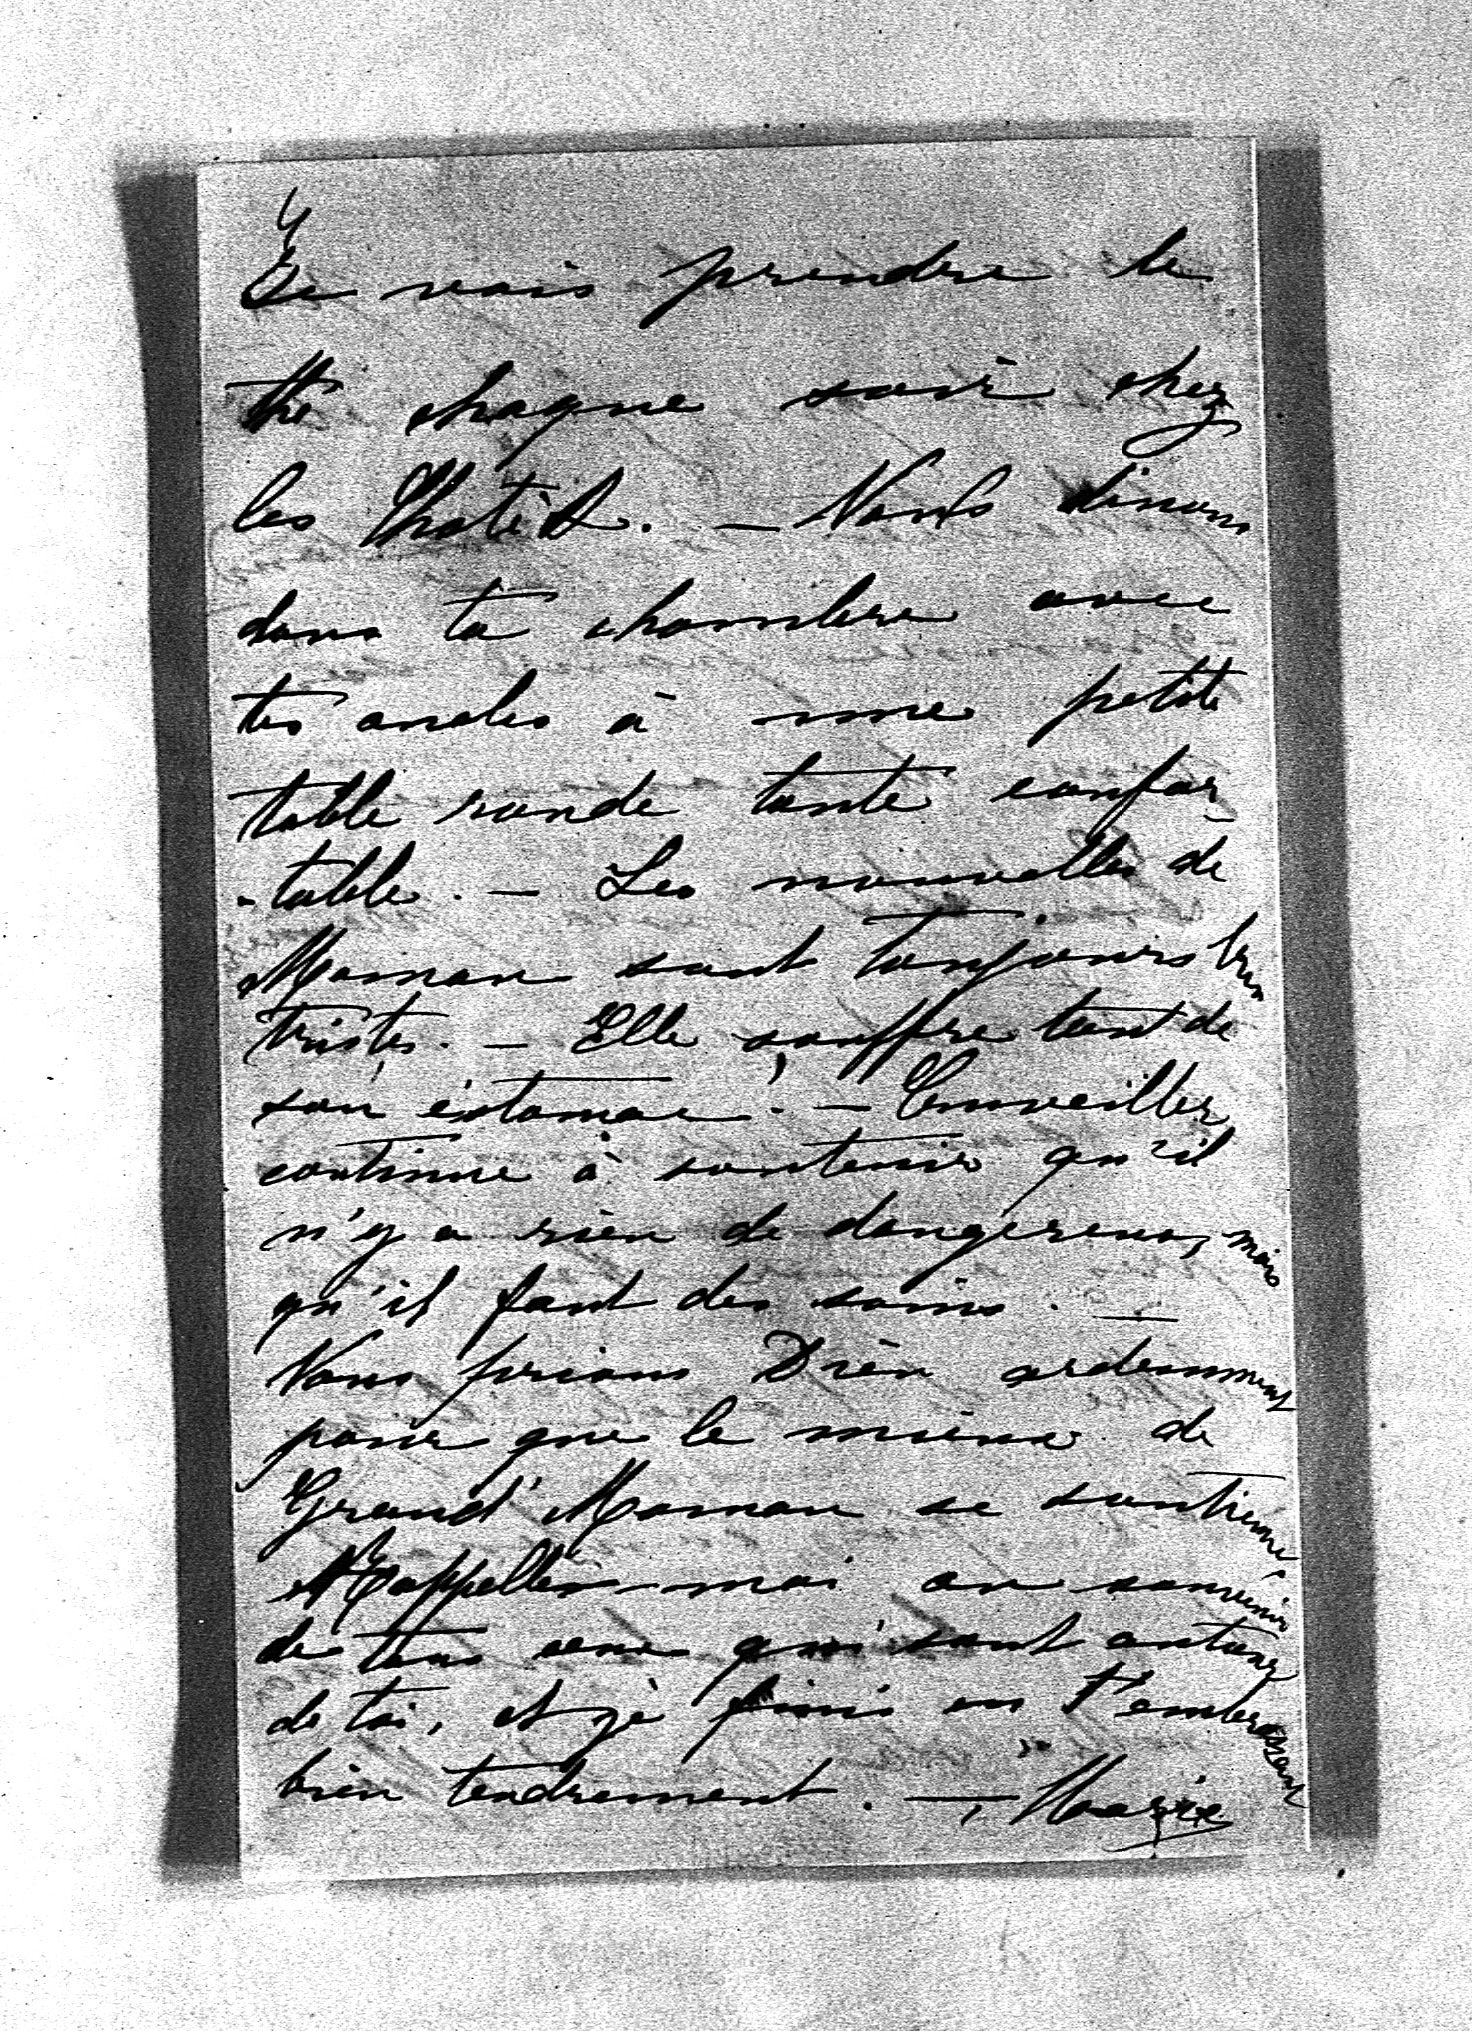 4
Je vais prendre le
thé chaque soir chez
les. — Nous dinons
dans ta chambre avec
tes oncles à une petite
table ronde toute confor-
-table. — Les nouvelles de
Maman sont toujours bien
tristes. — Elle souffre tant de
son éstomac. —
continue à soutenir qu'il
n'y a rien de dangereux, mais
qu'il faut des soins. —
Nous prions Dieu ardemment
pour que le mieux de
Grand'Maman se soutienne
Rappelles-moi au souvenir
de tous ceux qui sont autour
de toi, et je finis en t'embrassant
bien tendrement. — Marie